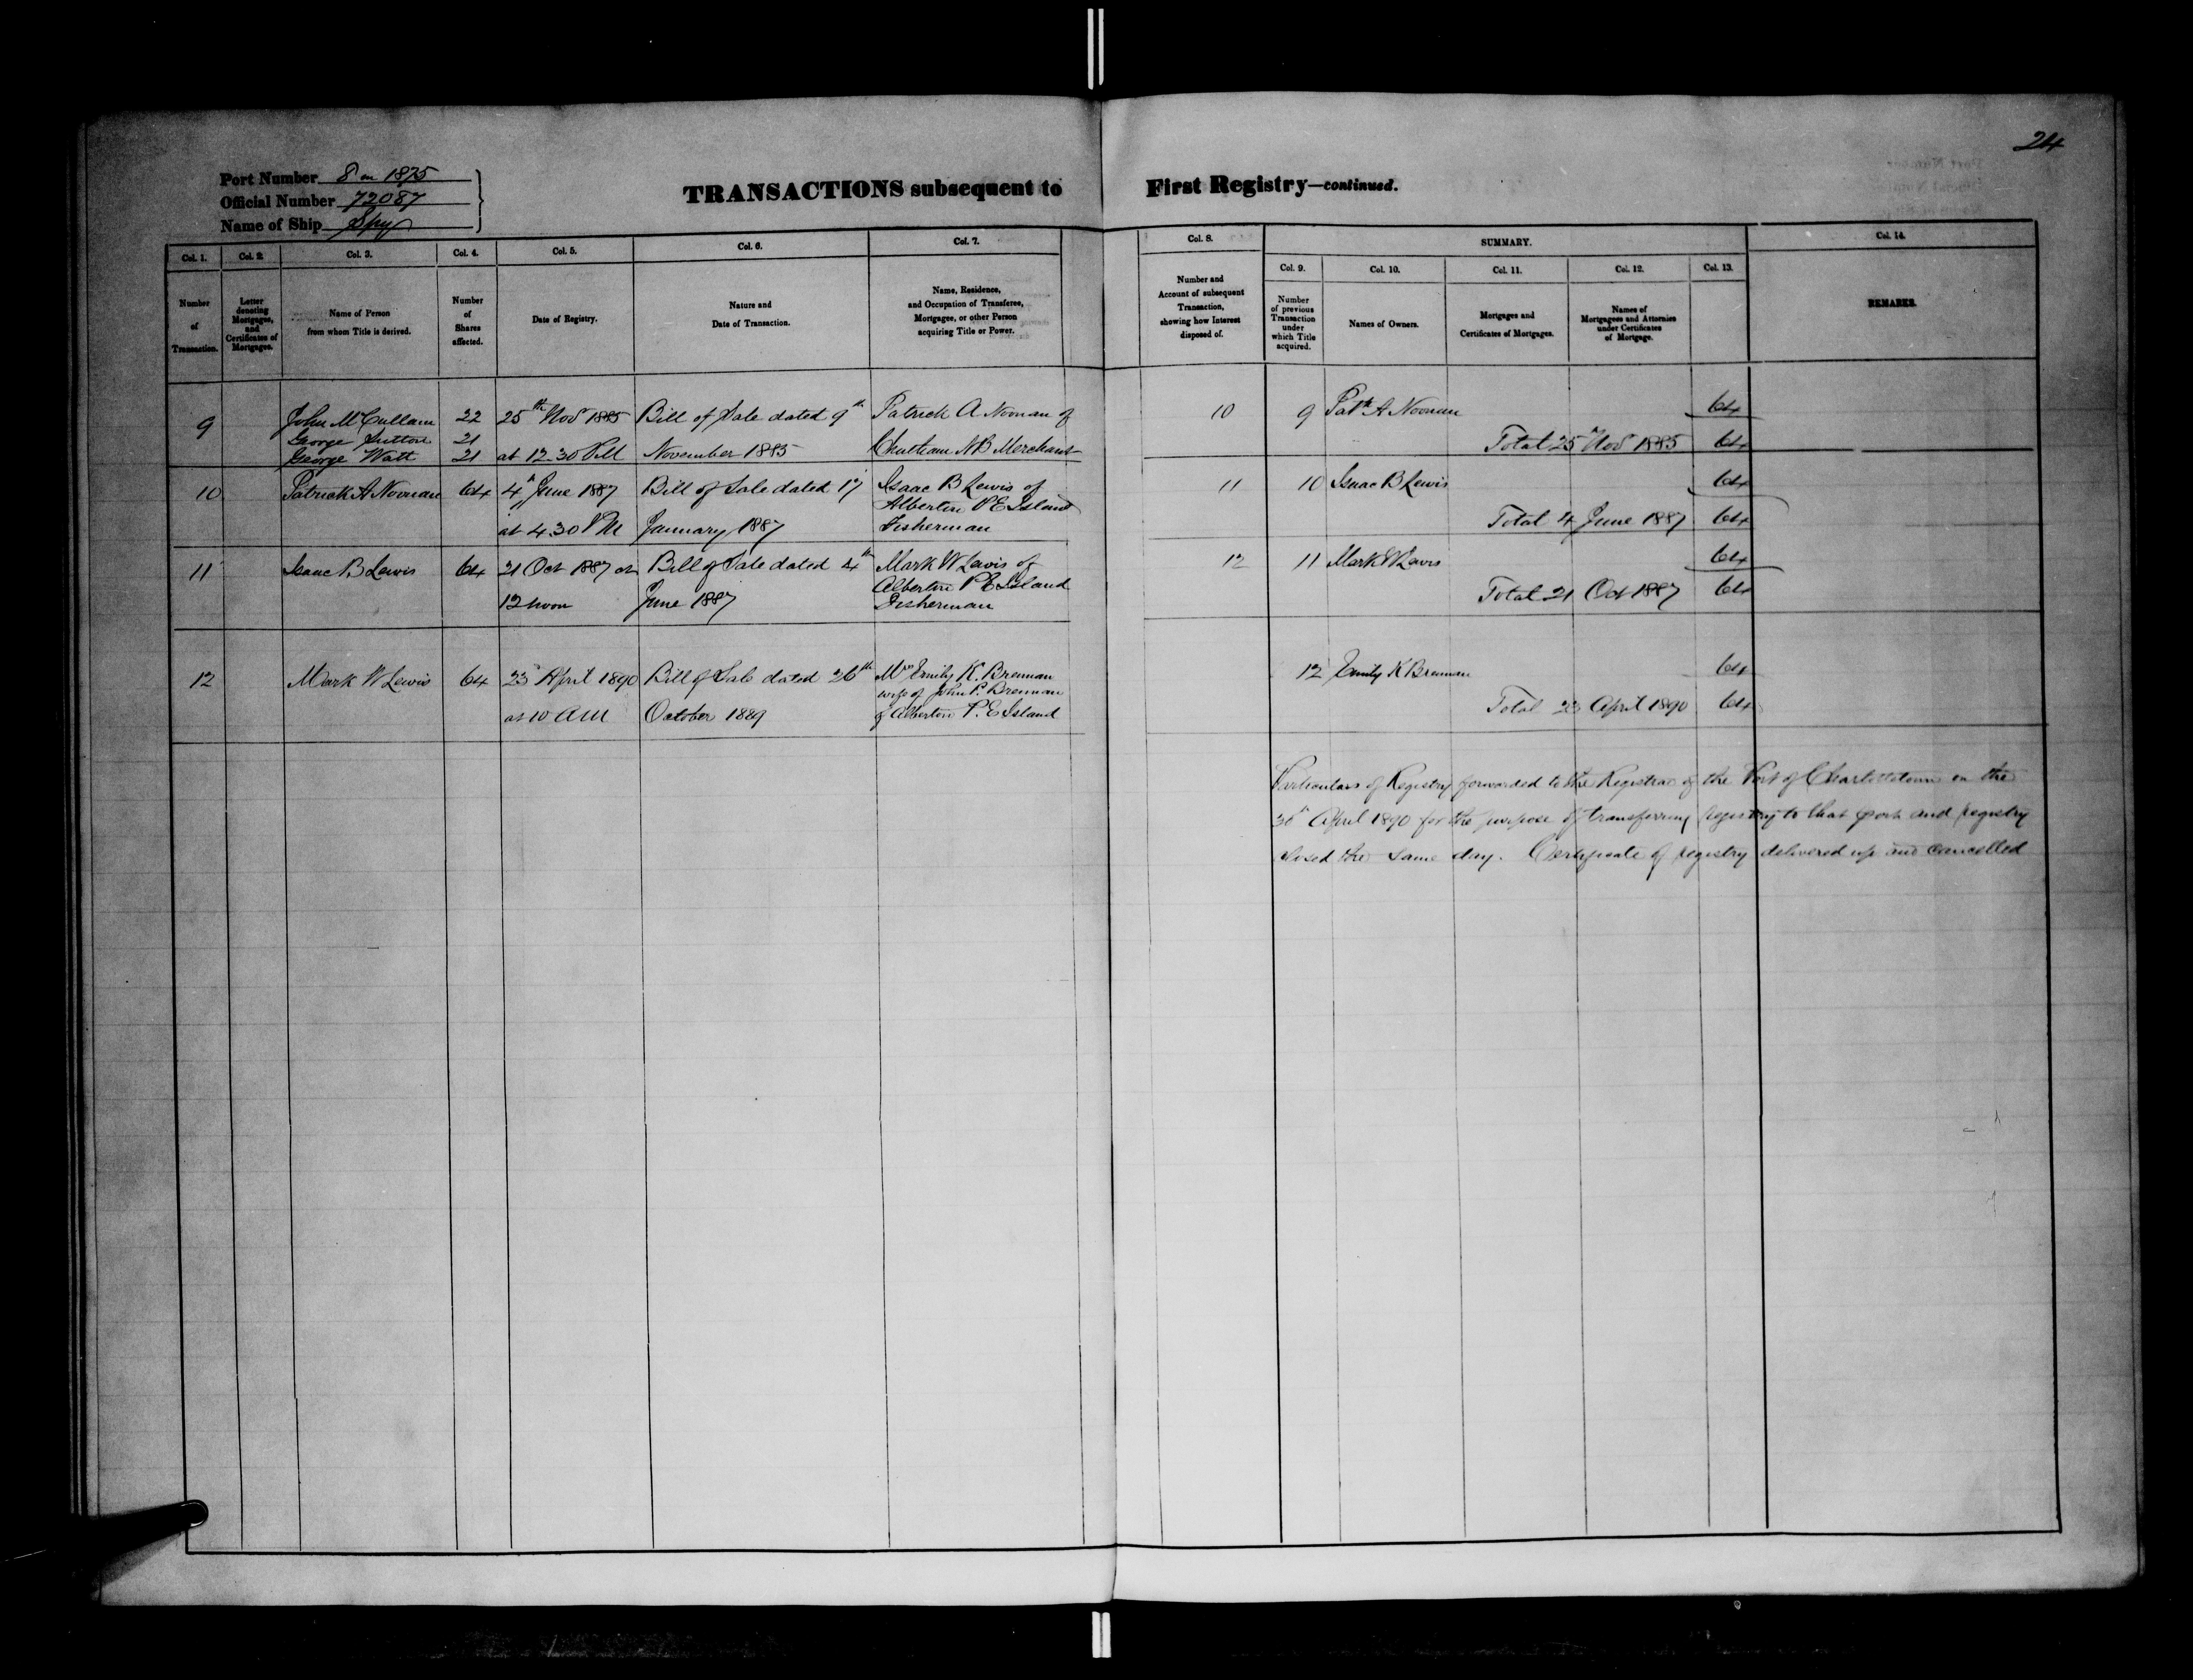 24
Port Number 8 on 1875
Official Number 72087
Name of Ship Spy
TRANSACTIONS subsequent to First Registry—continued.
Col. 1. Col. 2. Col. 3. Col. 4. Col. 5. Col. 6. Col. 7. Col. 8. SUMMARY. Col. 14.
Col. 9. Col. 10. Col. 11. Col. 12. Col. 13.
Number of Transaction.
Letter denoting Mortgages, and Certificates of Mortgages.
Name of Person from whom Title is derived.
Number of Shares affected.
Date of Registry.
Nature and Date of Transaction.
Name, Residence, and Occupation of Transferee, Mortgagee, or other Person acquiring Title or Power.
Number and Account of subsequent Transaction, showing how Interest disposed of.
Number of previous Transaction under which Title acquired.
Names of Owners.
Mortgages and Certificates of Mortgages.
Names of Mortgagees and Attornies under Certificates of Mortgage.
REMARKS.
9 John McCullam 22 25th Nov 1885 Bill of Sale dated 9th Patrick A Noonan of 10 9 Patk A Noonan 64
George Sutton 21
George Watt 21 at 12.30 PM November 1885 Chatham NB Merchant Total 25th Nov 1885 64
10 Patrick A Noonan 64 4th June 1887 Bill of Sale dated 17 Isaac B Lewis of 11 10 Isaac B Lewis 64
Alberton PE Island
at 4.30 PM January 1887 Fisherman Total 4 June 1887 64
11 Isaac B Lewis 64 21 Oct 1887 at Bill of Sale dated 4th Mark W Lewis of 12 11 Mark W Lewis 64
Alberton PE Island
12 noon June 1887 Fisherman Total 21 Oct 1887 64
12 Mark W Lewis 64 23 April 1890 Bill of Sale dated 26th Mrs Emily K. Brennan 12 Emily K Brennan 64
wife of John P. Brennan
at 10 AM October 1889 of Alberton P.E Island Total 23 April 1890 64
Particulars of Registry forwarded to the Registrar of the Port of Charlottetown on the
30th April 1890 for the purpose of transferring registry to that port and registry
closed the same day. Certificate of registry delivered up and cancelled